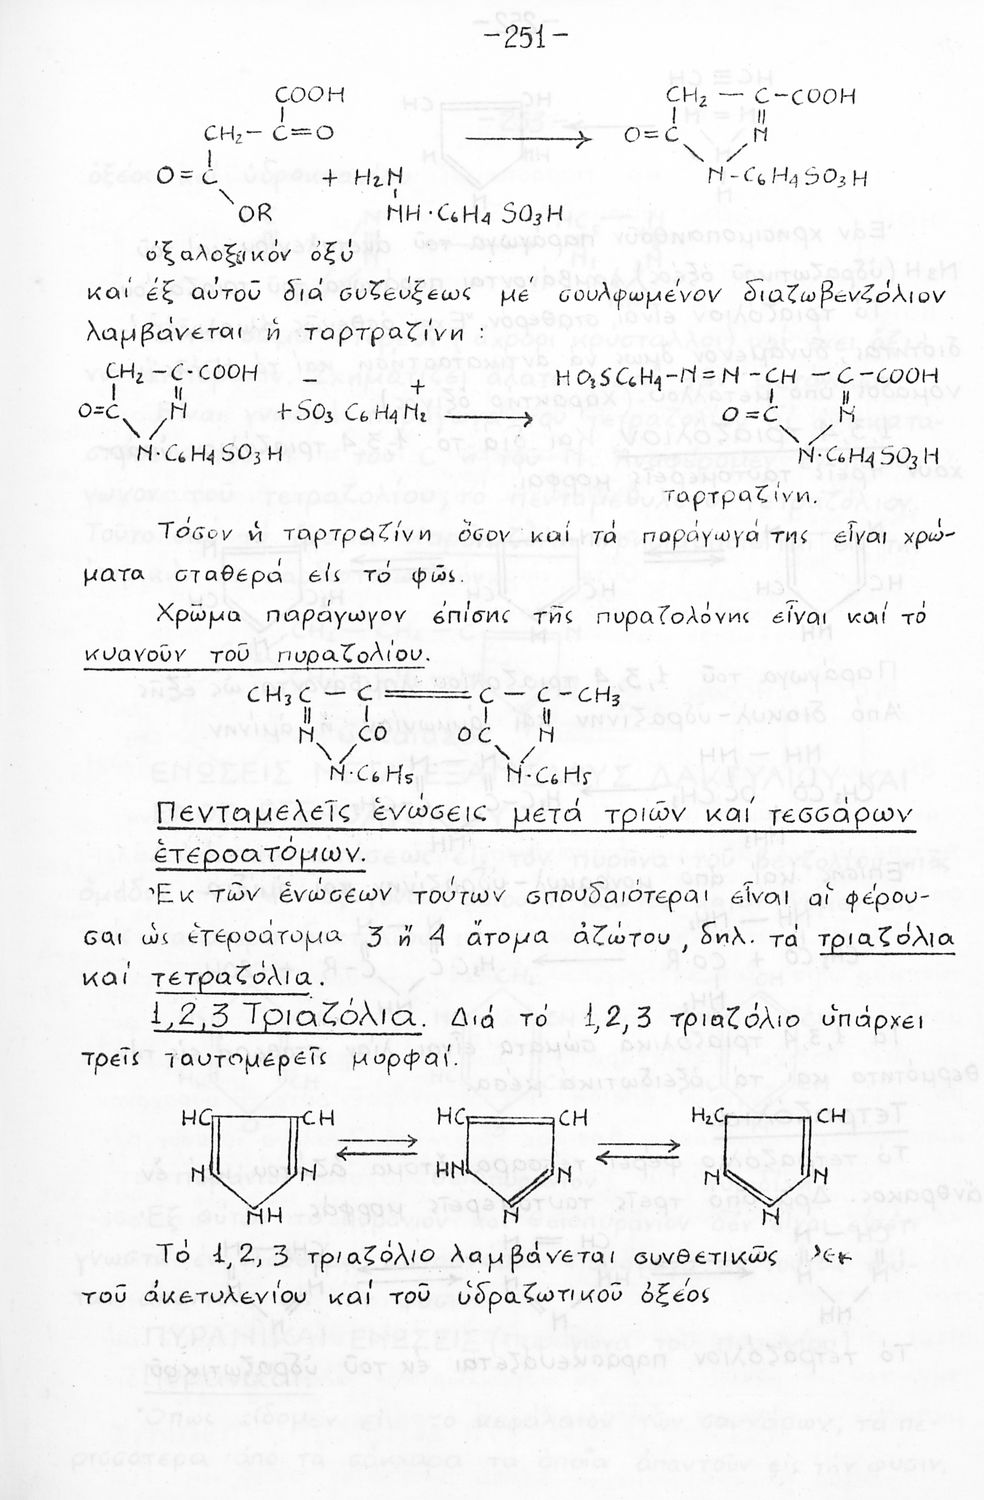 -251-
COOH
CH₂- C=O
O=C + H₂N
OR NH·C₆H₄ SO₃H
CH₂ — C-COOH
O=C N
N-C₆H₄SO₃H
ὀξαλοξικόν ὀξύ
καί ἐξ αὐτοῦ διά συζεύξεως μέ σουλφωμένον διαζωβενζόλιον
λαμβάνεται ἡ ταρτραζίνη :
CH₂ -C-COOH
O=C N
N·C₆H₄SO₃H
+ SO₃⁻ C₆H₄N₂⁺
HO₃SC₆H₄-N=N-CH — C-COOH
O=C N
N·C₆H₄SO₃H
ταρτραζίνη.
Τόσον ἡ ταρτραζίνη ὅσον καί τά παράγωγά της εἶναι χρώ-
ματα σταθερά εἰς τό φῶς.
Χρῶμα παράγωγον ἐπίσης τῆς πυραζολόνης εἶναι καί τό
κυανοῦν τοῦ πυραζολίου.
CH₃C — C = C — C-CH₃
N CO OC N
N·C₆H₅ N·C₆H₅
Πενταμελεῖς ἑνώσεις μετά τριῶν καί τεσσάρων
ἑτεροατόμων.
Ἐκ τῶν ἑνώσεων τούτων σπουδαιότεραι εἶναι αἱ φέρου-
σαι ὡς ἑτεροάτομα 3 ἤ 4 ἄτομα ἀζώτου, δηλ. τά τριαζόλια
καί τετραζόλια.
1,2,3 Τριαζόλια. Διά τό 1,2,3 τριαζόλιο ὑπάρχει
τρεῖς ταυτομερεῖς μορφαί.
HC CH HC CH H₂C CH
N N HN N N N
NH N N
Τό 1,2,3 τριαζόλιο λαμβάνεται συνθετικῶς Ἐκ
τοῦ ἀκετυλενίου καί τοῦ ὑδραζωτικοῦ ὀξέος